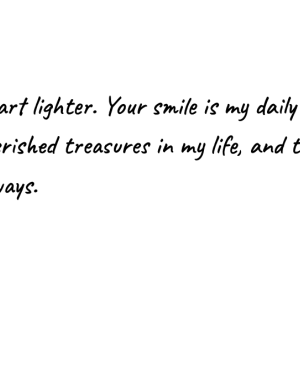 art lighter. Your smile is my daily
rished treasures in my life, and t
ays.